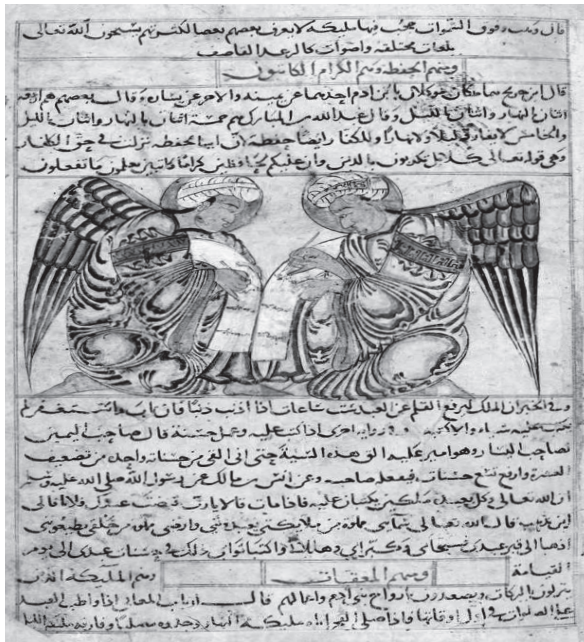 قال وهب وفوق السموات حجب فيها مليكة لا يعرف بعضهم بعضا لكثرتهم يسبحون الله تعالى
بلغات مختلفه واصوات كالرعد القاصف
ومنهم الحفظه وهم الكرام الكاتبون
قال ابن جريج هما ملكان موكلان بابن ادم احدهما عن يمينه والاخر عن يساره وقال بعضهم هم اربعه
اثنان بالنهار واثنان بالليل وقال عبد الله بن المبارك هم خمسة اثنان بالنهار واثنان بالليل
والخامس لا يفارقه ليلا ولا نهارا وللكفار ايضا حفظة لان اية الحفظه نزلت في حق الكفار
وهي قوله تعالى كلا بل تكذبون بالدين وان عليكم لحافظين كراما كاتبين يعلمون ما تفعلون
وفي الخبر ان الملك ليرفع القلم عن العبد ست ساعات اذا اذنب ذنبا فان تاب واستغفر لم
يكتب عليه شياء والا كتبه وفي رواية اخرى اذا كتب عليه وعمل حسنة قال صاحب اليمين
لصاحب اليسار وهو امير عليه الق هذه السئية حتى القي من حسناته واحده من تضعيف
العشرة وارفع تسع حسنات فيفعل صاحبه وعن انس بن مالك عن رسول الله صلى الله عليه
ان الله تعالى وكل بعبده ملكين يكتبان عليه فاذا مات قالا يا رب قبضت عبدك فلانا فالى
اين نذهب قال الله تعالى سمائي مملوة من مليكتي يعبدونني وارضي مملوة من خلقي يطيعونني
اذهبا الى قبر عبدي فسبحاني وكبراني وهللاني واكتبا ثواب ذلك في حسنات عبدي الى يوم
القيامة ومنهم المعقبات وهم المليكة الذين
ينزلون بالبركات ويصعدون بارواح بني ادم واعمالهم قال ارباب المعاني اذا واظب العبد
على الصلوات في اول اوقاتها فاذا صلى الفجر